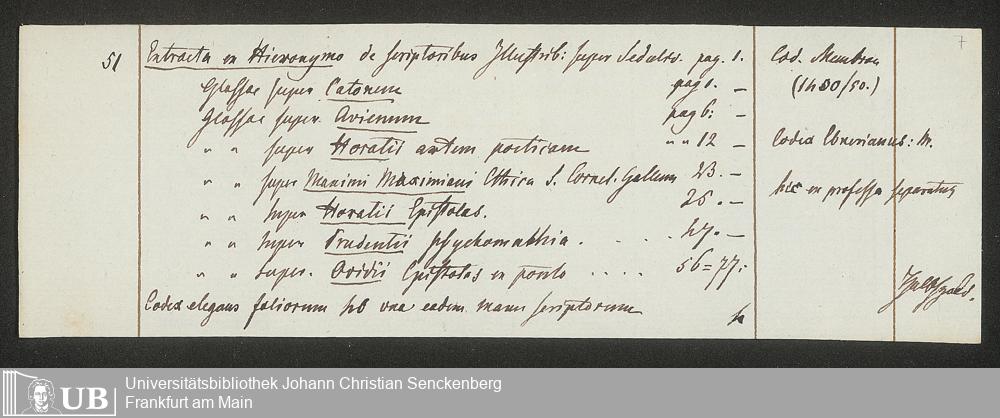 7
51 Extracta ex Hieronymo de scriptoribus Illustrib: super Sedulio. pag. 1. Cod. Membran
Glossae super Catonem pag 1. — (1400/50.)
Glossae super Avienum pag 6: —
" " super Horatii artem poeticam " " 12 — Codex Ebnerianus: M.
" " super Maximi Maximiani Ethica S. Cornel. Gallum 23. — hic ex professo separatus
" " super Horatii Epistolas. 25. —
" " super Prudentii psychomathia . . . . . 47. —
" " super. Ovidii Epistolas ex ponto . . . . 56=77:
Codex elegans foliorum una eadem manu scriptorum
Universitätsbibliothek Johann Christian Senckenberg
Frankfurt am Main
UB